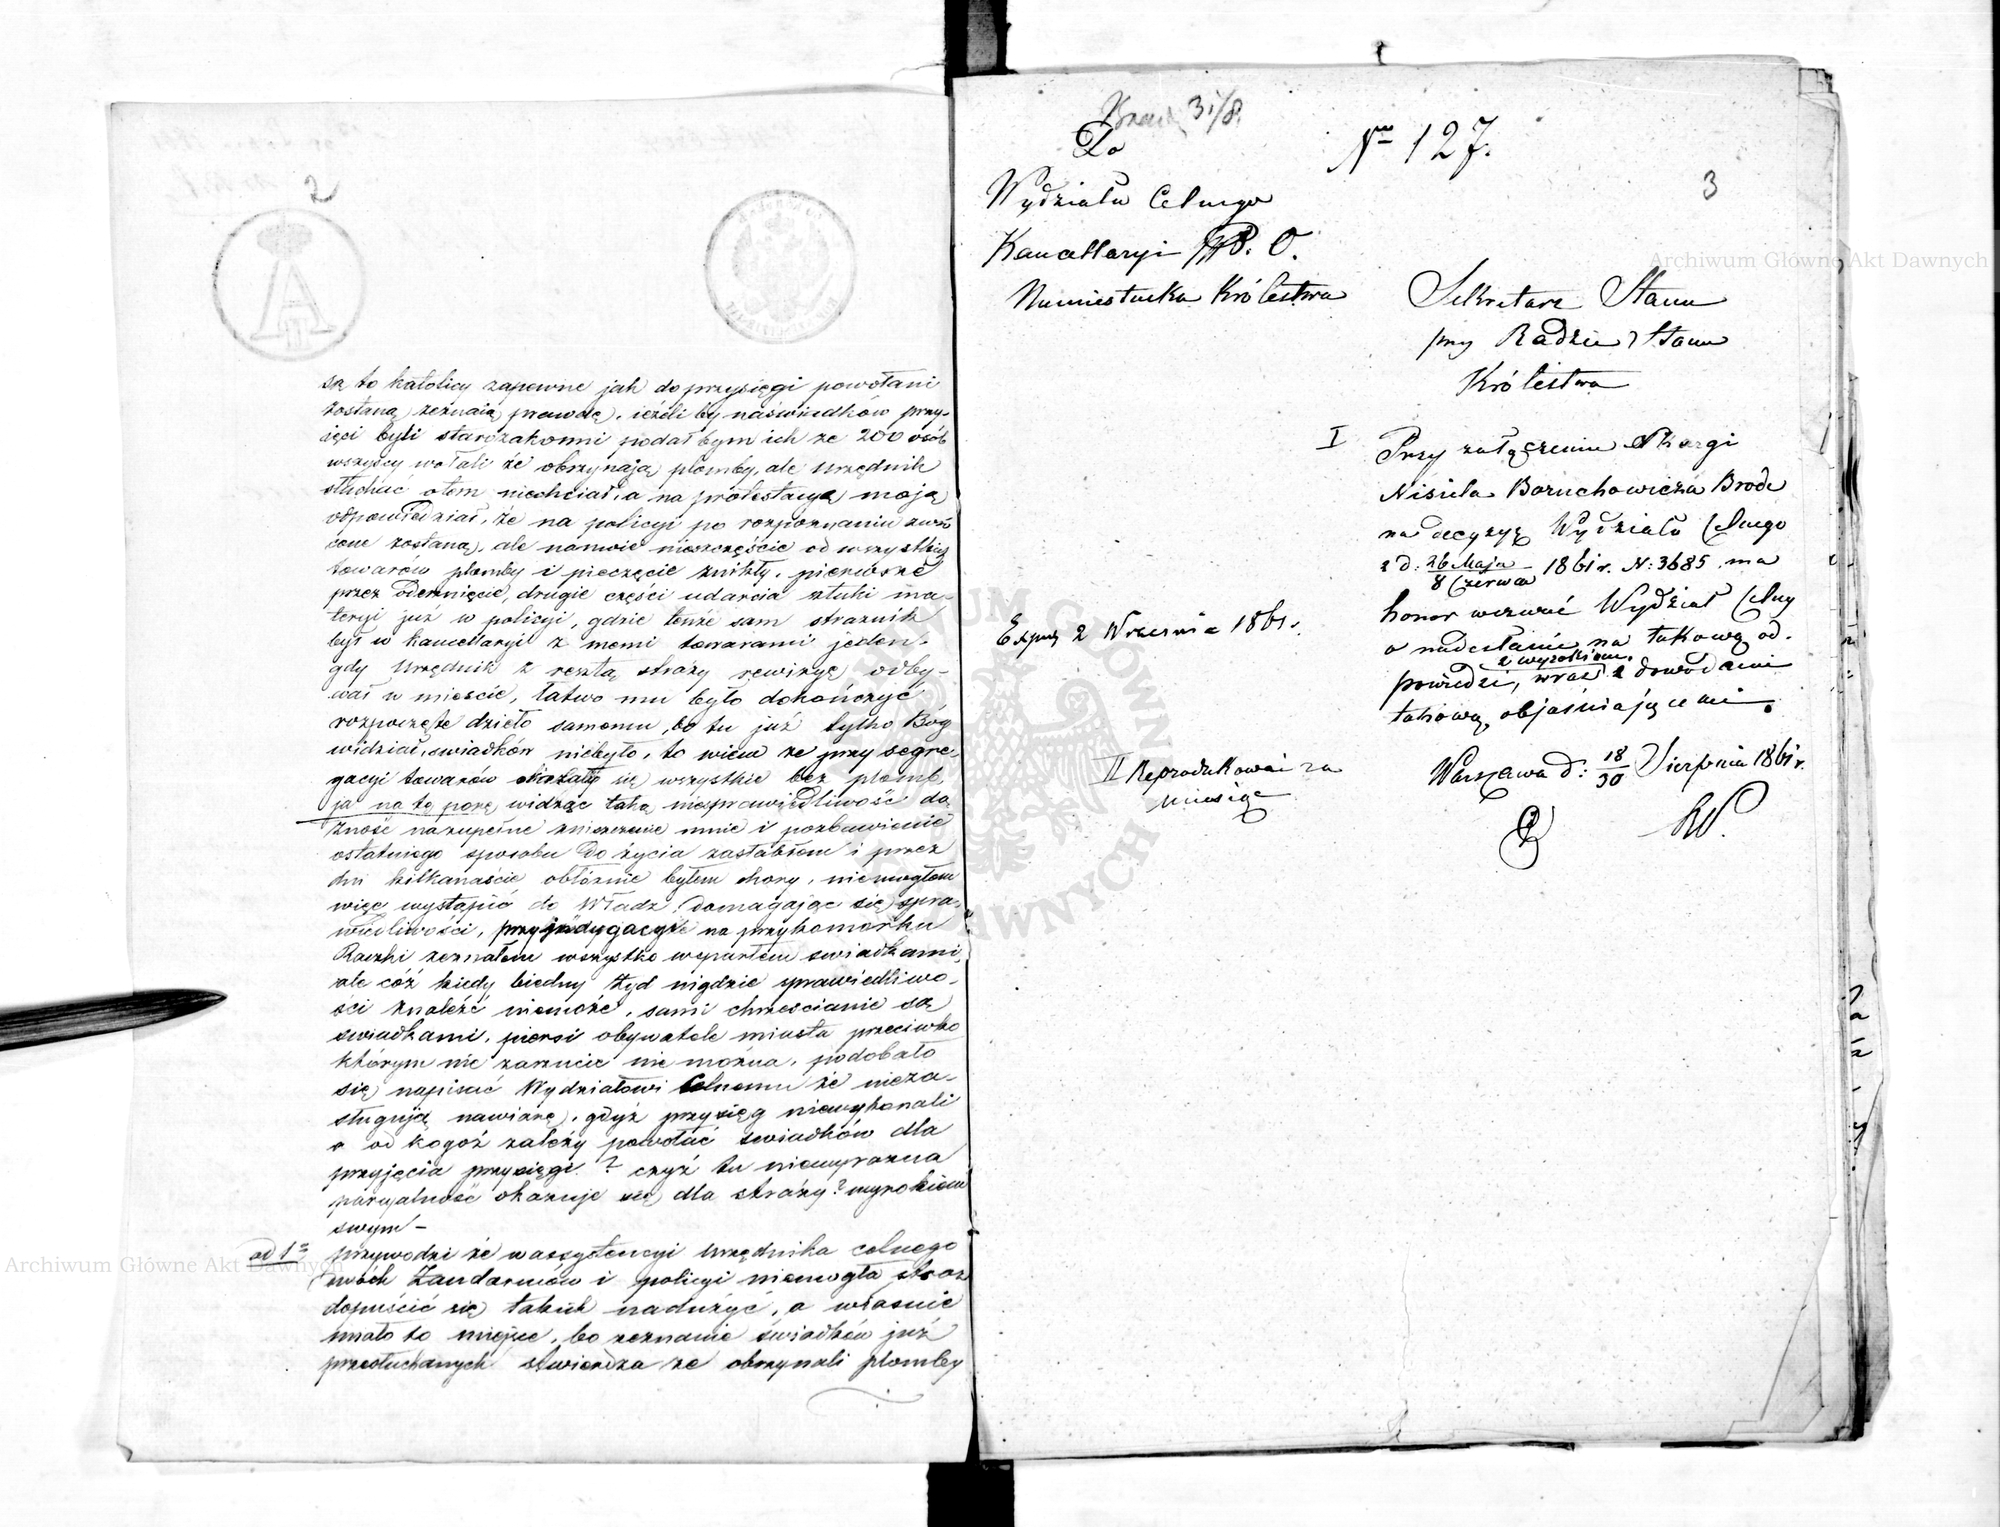 2
są to katolicy zapewne jak do przysięgi powołani
zostaną zeznaią prawdę, ieżeli by na świadków przy-
ięci byli starozakonni podał bym ich ze 200 osób
wszyscy wołali że obrzynają plomby, ale urzędnik
słuchać otem niechciał, a na protestacyą moją
odpowiedział, że na policyi po rozpoznaniu zwró
cone zostaną, ale nanowie nieszczęście od wszystkich
towarów plomby i pieczęcie znikły, pierwsze
przez oderznięcie, drugie części udarcia sztuki ma-
teryi już w policyi, gdzie tenże sam strażnik
był w kancellaryi z memi towarami jeden,
gdy urzędnik z resztą straży rewizyę odby-
wał w mieście, łatwo mu było dokończyć
rozpoczęte dzieło samemu, bo tu już tylko Bóg
widział, swiadków niebyło, to wiem ze przy segre-
gacyi towarów okazały się wszystkie bez plomb,
ja na tę porę widząc taką niesprawiedliwość do
zność nazupełne zniszczenie mnie i pozbawienie
ostatniego sposobu do życia zasłabłem i przez
dni kilkanaście obłożnie byłem chory, niemogłem
więc wystąpić do Władz, domagając się spra-
wiedliwości, przy jndygacyi na przykomorku
Raczki zeznałem wszystko wsparłem swiadkami,
ale cóż kiedy biedny żyd nigdzie sprawiedliwo-
ści znaleźć niemoże, sami chrześcianie są
swiadkami, piersi obywatele miasta przeciwko
którym nic zarzucić nie można, podobało
się napisać Wydziałowi Celnemu że nieza-
sługują nawiarę, gdyż przysięg niewykonali
a od kogoż zależy powołać swiadków dla
przyjęcia przysięgi? czyż tu niewyrazna
parcyalność okazuje się dla straży? wyrokiem
swym –
ad 1o przywodzi że wassystencyi urzędnika celnego
dwóch Żandarmów i policyi niemogła straż
dopuścić się takich nadużyć, a własnie
miało to miejsce, bo zeznanie świadków już
przesłuchanych stwierdza ze obrzynali plomby
31/8.
Do
Wydziału Celnego
Kancellaryi P. O.
Namiestnika Królestwa
No 127.
3
Sekretarz Stanu
przy Radzie Stanu
Królestwa
I Przy załączeniu skargi
Nisiela Boruchowicza Brode
na decyzyę Wydziału Celnego
z d: 26 Maja / 8 Czerwca 1861 r. N: 3685, ma
honor wezwać Wydział Celny
o nadesłanie na takową od-
powiedzi, wraz z wyrokiem, z dowodami
takową objaśniającemi.
Exped 2 Wrzesnia 1861 r.
II Reprodukować za
miesiąc
Warszawa d: 18/30 Sierpnia 1861 r.
Archiwum Główne Akt Dawnych
Archiwum Główne Akt Dawnych